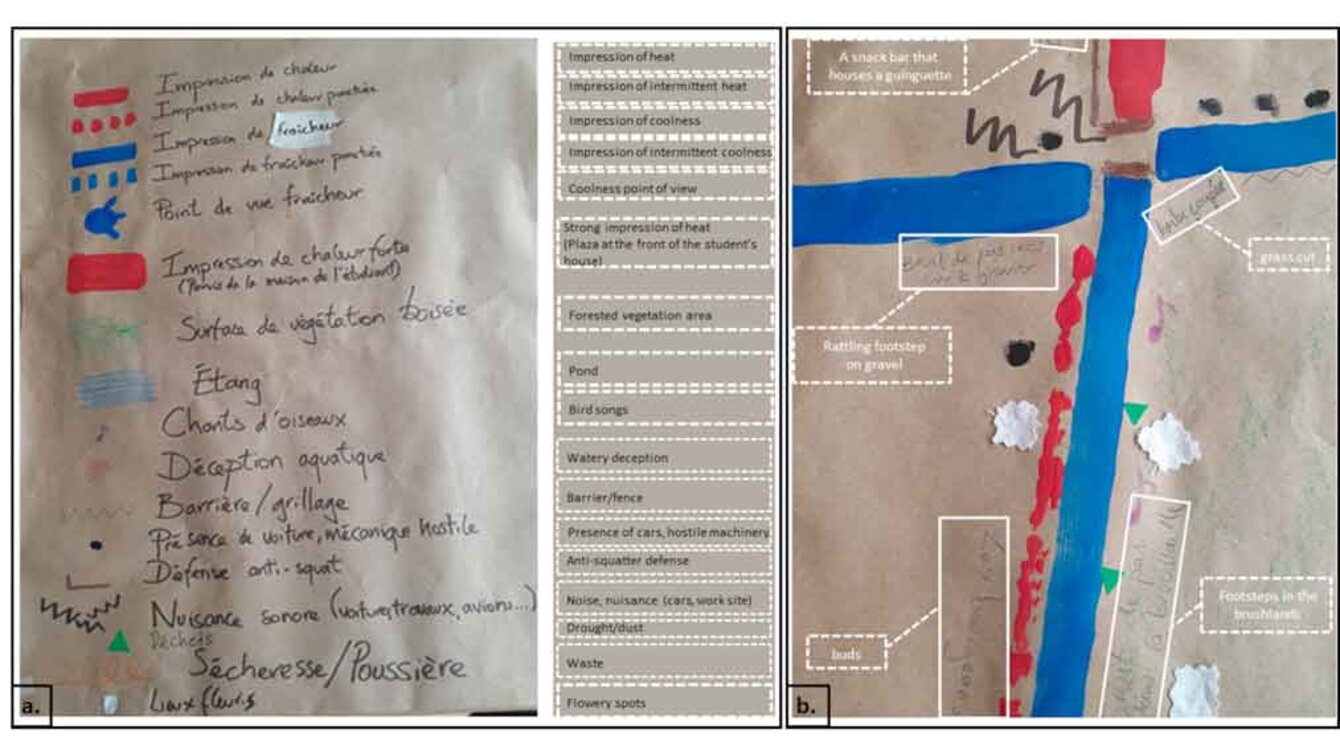 Impression de chaleur
Impression de chaleur ponctuée
Impression de fraîcheur
Impression de fraîcheur ponctuée
Point de vue fraîcheur
Impression de chaleur forte
(Parvis de la maison de l'étudiant)
Surface de végétation boisée
Étang
Chants d'oiseaux
Déception aquatique
Barrière/grillage
Présence de voiture, mécanique hostile
Défense anti-squat
Nuisance sonore (voiture, travaux, avions...)
Déchets
Sécheresse/Poussière
Lieux fleuris
a.
Impression of heat
Impression of intermittent heat
Impression of coolness
Impression of intermittent coolness
Coolness point of view
Strong impression of heat
(Plaza at the front of the student's
house)
Forested vegetation area
Pond
Bird songs
Watery deception
Barrier/fence
Presence of cars, hostile machinery
Anti-squatter defense
Noise, nuisance (cars, work site)
Drought/dust
Waste
Flowery spots
A snack bar that
houses a guinguette
herbe coupée
grass cut
Bruit de pas
sur le gravier
Rattling footstep
on gravel
Footsteps in the
brushlands
buds
b.